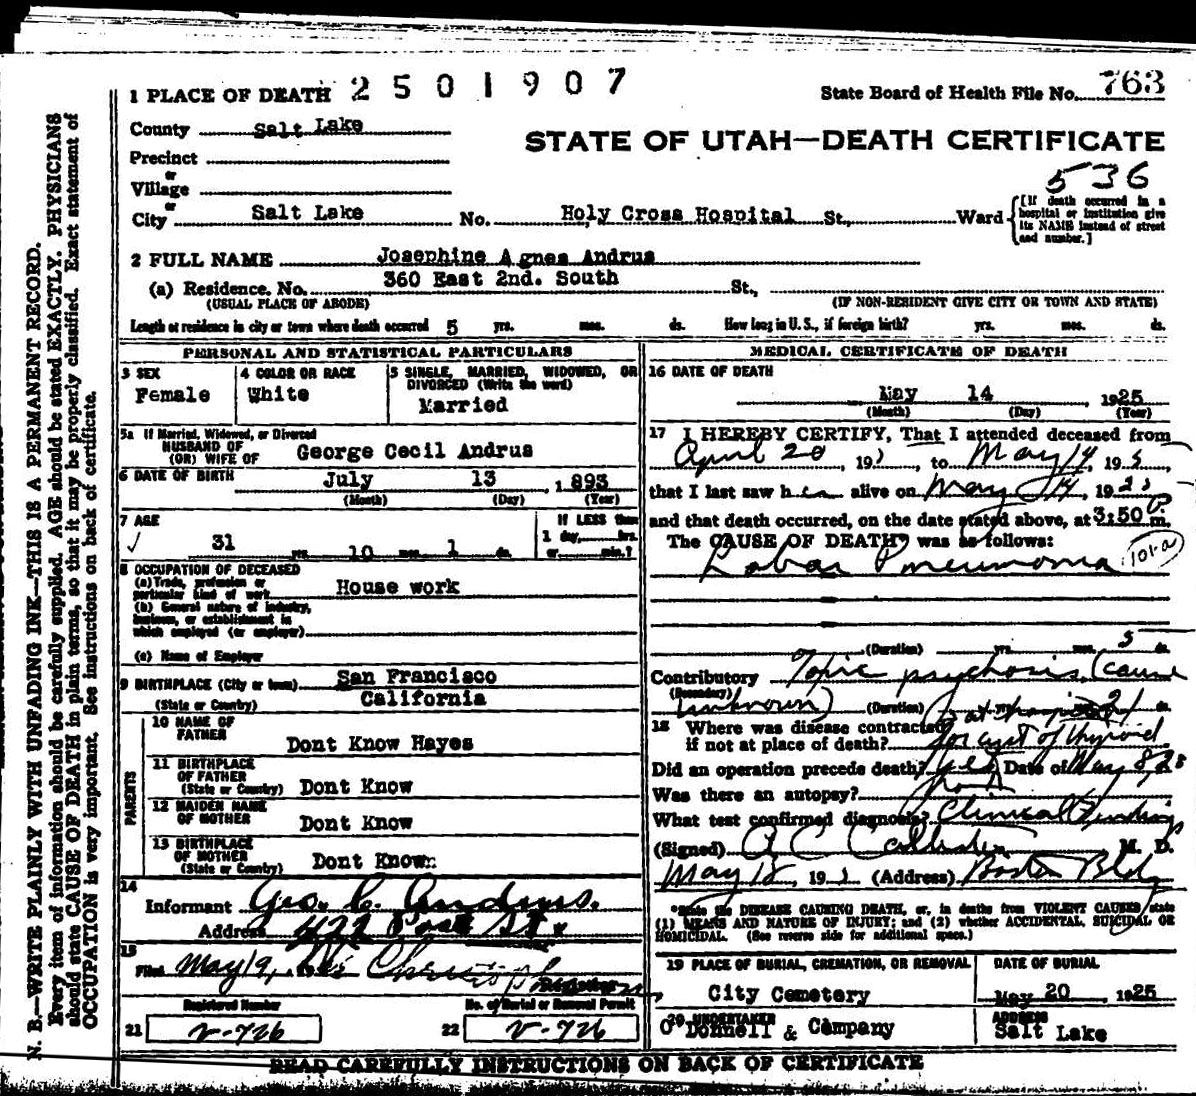 2501907
1 PLACE OF DEATH
State Board of Health File No. 763
County Salt Lake
STATE OF UTAH—DEATH CERTIFICATE
Precinct
or
Village
536
or
City Salt Lake No. Holy Cross Hospital St., Ward
[If death occurred in a hospital or institution give its NAME instead of street and number.]
2 FULL NAME Josephine Agnes Andrus
(a) Residence. No. 360 East 2nd. South St.,
(USUAL PLACE OF ABODE) (IF NON-RESIDENT GIVE CITY OR TOWN AND STATE)
Length of residence in city or town where death occurred 5 yrs. mos. ds. How long in U. S., if foreign birth? yrs. mos. ds.
PERSONAL AND STATISTICAL PARTICULARS
3 SEX
Female
4 COLOR OR RACE
White
5 SINGLE, MARRIED, WIDOWED, OR
DIVORCED (Write the word)
Married
5a If Married, Widowed, or Divorced
HUSBAND OF
(OR) WIFE OF George Cecil Andrus
6 DATE OF BIRTH July 13 1893
(Month) (Day) (Year)
7 AGE
31 yrs. 10 mos. 1 ds.
IF LESS than
1 day, hrs.
or min.?
8 OCCUPATION OF DECEASED
(a) Trade, profession or
particular kind of work House work
(b) General nature of industry,
business, or establishment in
which employed (or employer)
(c) Name of Employer
9 BIRTHPLACE (City or town) San Francisco
(State or Country) California
PARENTS
10 NAME OF
FATHER Dont Know Hayes
11 BIRTHPLACE
OF FATHER
(State or Country) Dont Know
12 MAIDEN NAME
OF MOTHER Dont Know
13 BIRTHPLACE
OF MOTHER
(State or Country) Dont Known
14
Informant Geo. C. Andrus.
Address 422 Post St.
15
Filed May 19,
Registrar
Registered Number
21 V-726
No. of Burial or Removal Permit
22 V-726
MEDICAL CERTIFICATE OF DEATH
16 DATE OF DEATH
May 14 1925
(Month) (Day) (Year)
17 I HEREBY CERTIFY, That I attended deceased from
April 20, 19 , to May 14, 195,
that I last saw her alive on May 14, 1925
and that death occurred, on the date stated above, at 3:50 P m.
The CAUSE OF DEATH was as follows:
Lobar Pneumonia 101-a
(Duration) yrs. mos. 5 ds.
Contributory Toxic psychosis (cause
(Secondary) unknown) (Duration) yrs. mos. 21 ds.
18 Where was disease contracted
if not at place of death? for cyst of thyroid
Did an operation precede death? yes Date of May 8, 25
Was there an autopsy? no
What test confirmed diagnosis? Clinical Finding
(Signed) A C Callister M. D.
May 18, 19 (Address) Boston Bldg
*State the DISEASE CAUSING DEATH, or, in deaths from VIOLENT CAUSES, state
(1) MEANS AND NATURE OF INJURY; and (2) whether ACCIDENTAL, SUICIDAL OR
HOMICIDAL. (See reverse side for additional space.)
19 PLACE OF BURIAL, CREMATION, OR REMOVAL
City Cemetery
DATE OF BURIAL
May 20, 1925
20 UNDERTAKER
O'Donnell & Company
ADDRESS
Salt Lake
READ CAREFULLY INSTRUCTIONS ON BACK OF CERTIFICATE
N. B.—WRITE PLAINLY WITH UNFADING INK—THIS IS A PERMANENT RECORD.
Every item of information should be carefully supplied. AGE should be stated EXACTLY. PHYSICIANS
should state CAUSE OF DEATH in plain terms, so that it may be properly classified. Exact statement of
OCCUPATION is very important. See instructions on back of certificate.